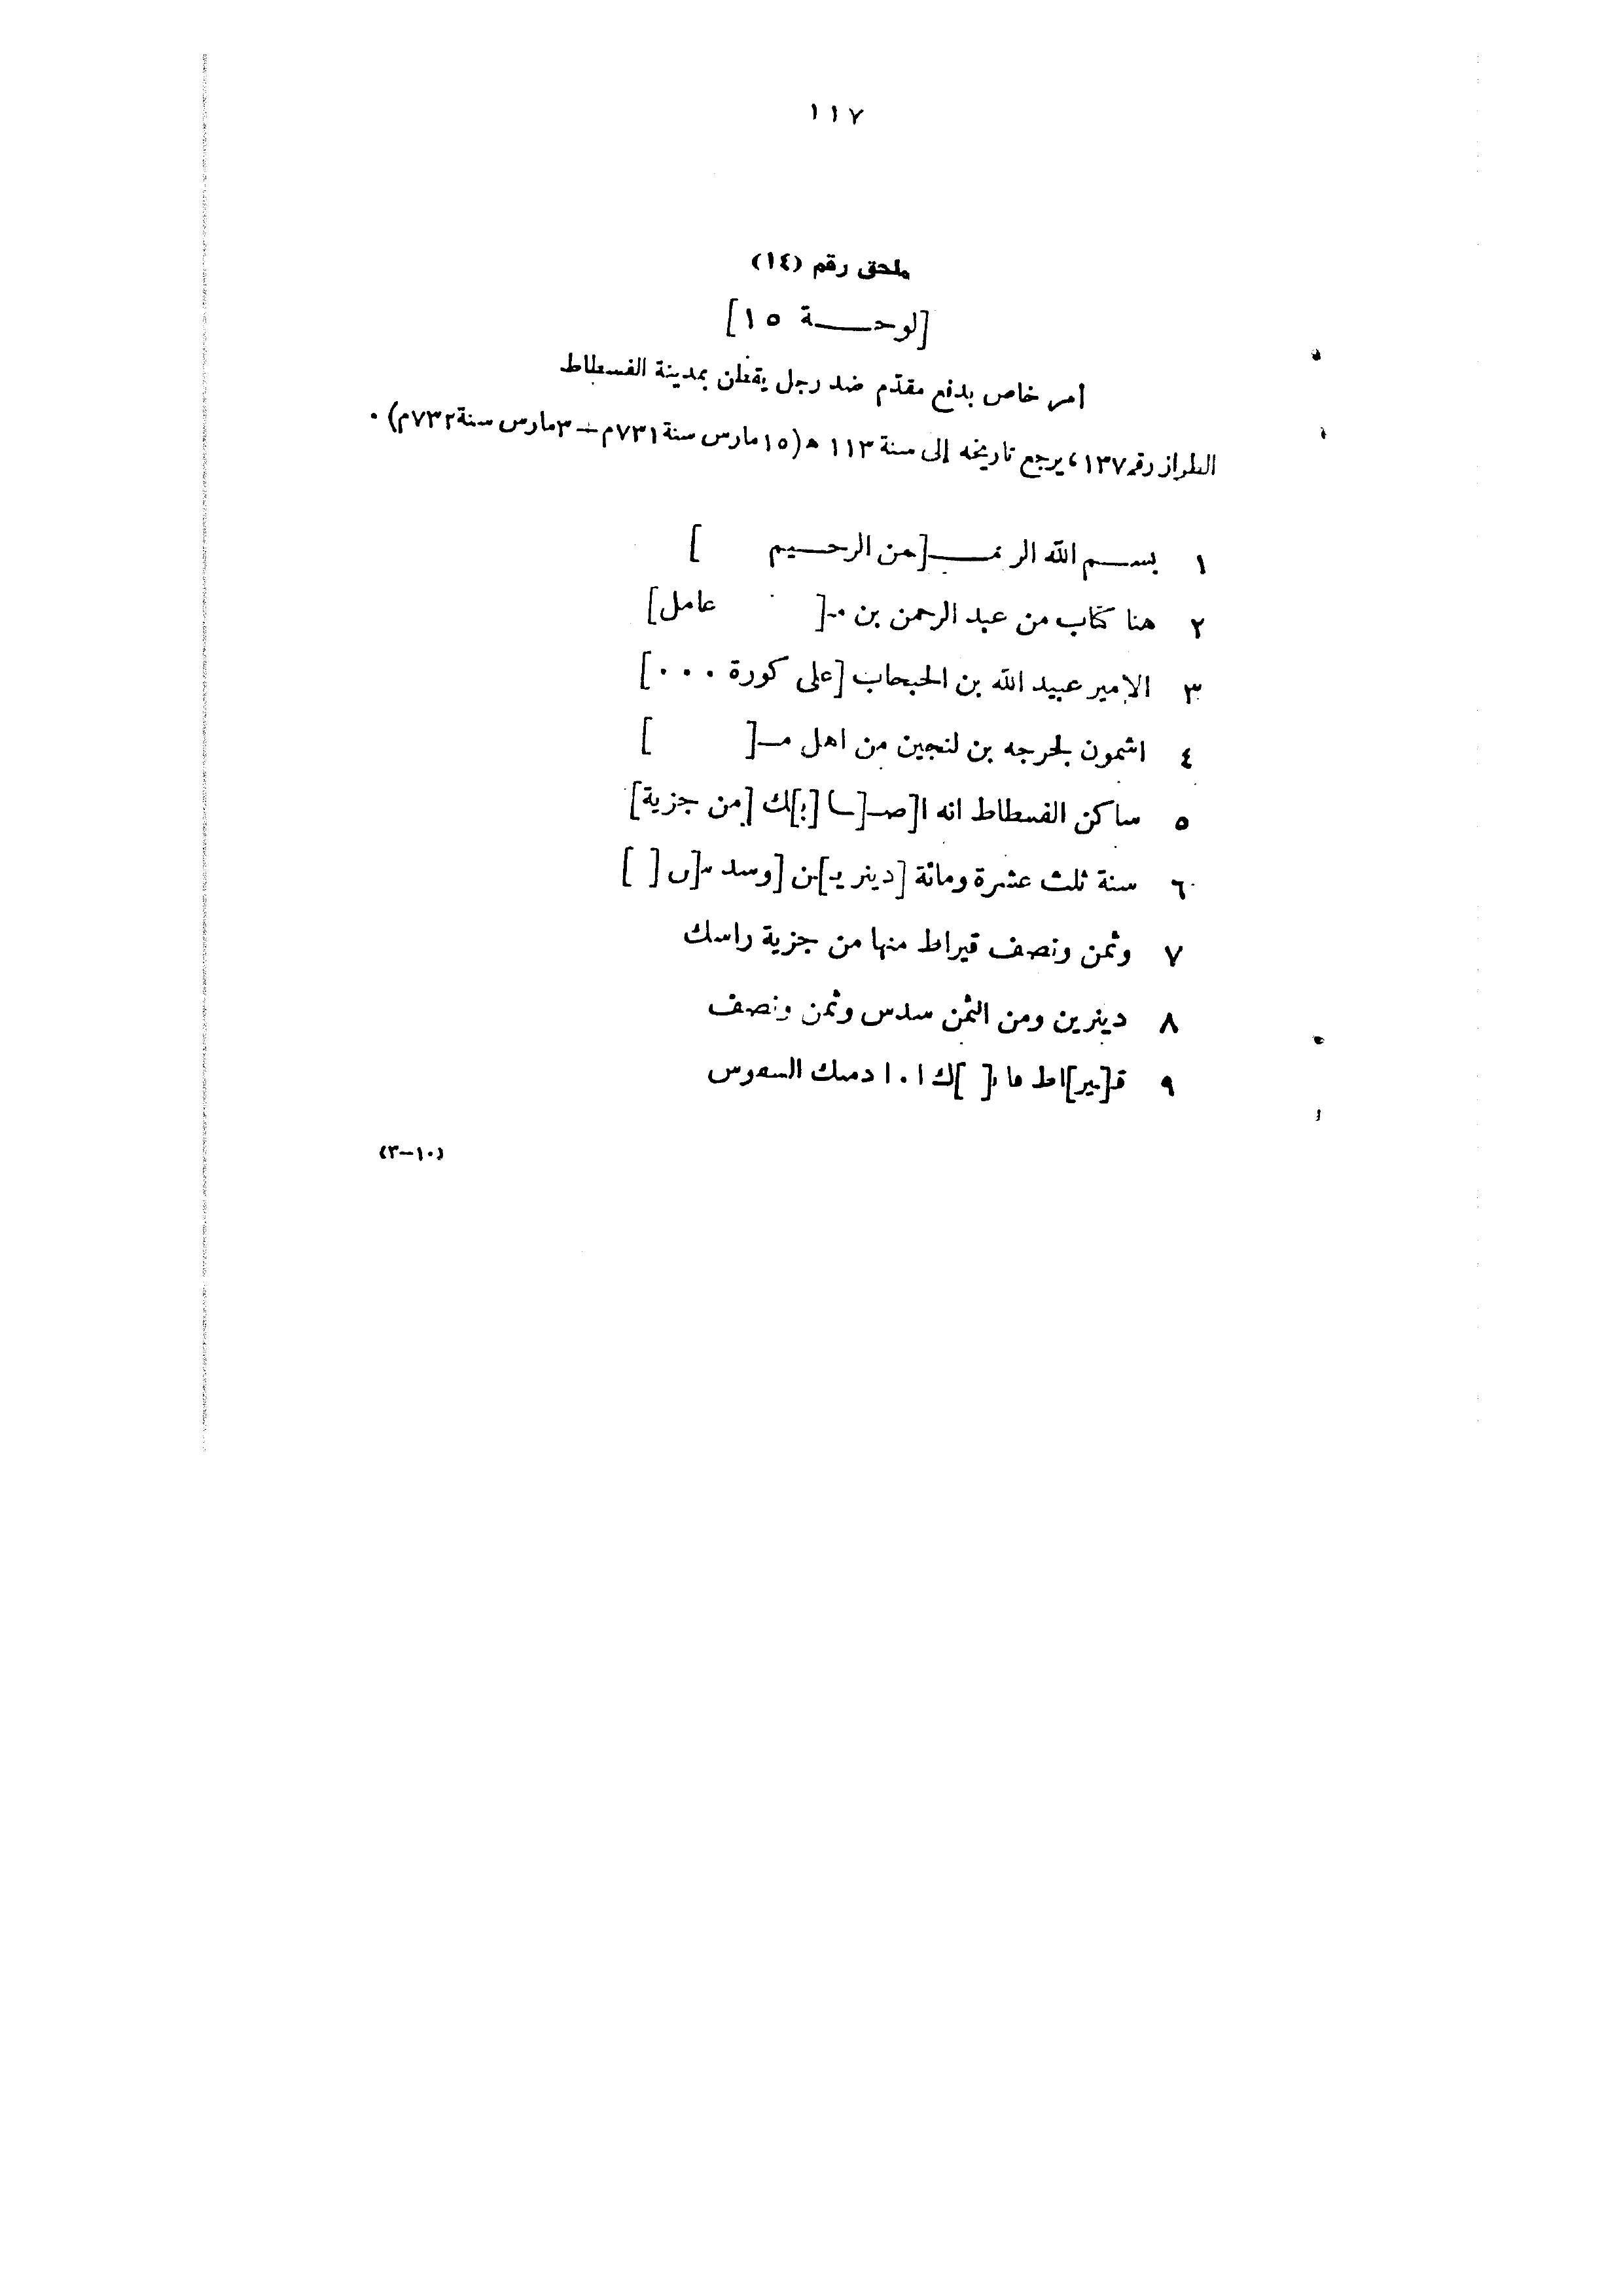 ١١٧
ملحق رقم (١٤)
[لوحـــــة ١٥]
أمر خاص بدفع مقدّم ضد رجل يقطن بمدينة الفسطاط
الطراز رقم ١٣٧، يرجع تاريخه إلى سنة ١١٣ هـ (١٥ مارس سنة ٧٣١م – ٣ مارس سنة ٧٣٢م) .
١ بســـم الله الرحمـــ[من الرحـــيم ]
٢ هذا كتاب من عبد الرحمن بن مـ[ عامل]
٣ الامير عبيد الله بن الحبحاب [على كورة ...]
٤ اشمون لجرجه بن لنجين من اهل مـ[ ]
٥ ساكن الفسطاط انه ا[صـ]ـا[بـ]ـك [من جزية]
٦ سنة ثلث عشرة ومائة [دينريـ]ـن [وسد س]ـس [ ]
٧ وثمن ونصف قيراط منها من جزية راسك
٨ دينرين ومن الثمن سدس وثمن ونصف
٩ قـ[ـير]اط ما [ ]ك ا . ا
(٣–١٠)